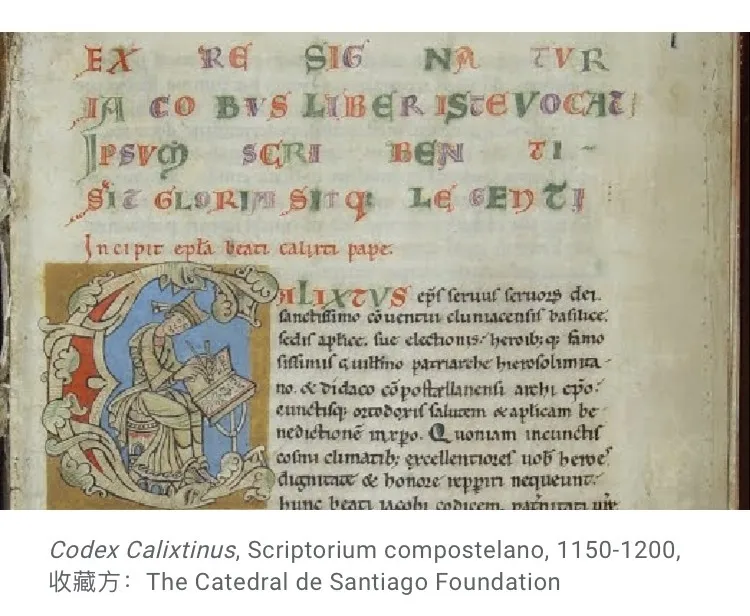 EX RE SIGNATUR
IACOBVS LIBER ISTE VOCAT
IPSVM SCRIBENTI
SIT GLORIA SITQ: LEGENTI
Incipit epła beati calixti pape.
CALIXTVS ep̄s seruus seruoꝝ dei.
sanctissimo cōuentui cluniacensis basilice,
sedis aplice, sue electionis heroibꝰ: famo
sissimis guiłłmo patriarche hierosolimita-
no. & didaco cōpostellanensi archi ep̄o.
cunctisq; ortodoxis salutem & aplicam be
nedictionē in xp̄o. Quoniam in cunctis
cosmi climatib; excellentiores uob heroes
dignitate & honore repperi nequeunt.
hunc beati iacobi codicem,
Codex Calixtinus, Scriptorium compostelano, 1150-1200,
收藏方：The Catedral de Santiago Foundation